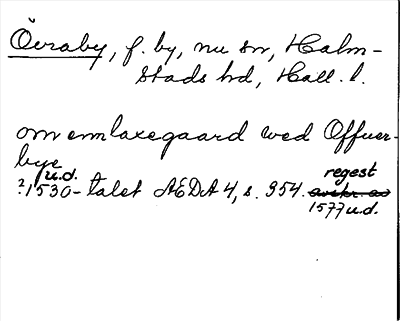 Övraby, f. by, nu sn, Halm-
stads hd, Hall. l.
om em laxegaard wed Offuer-
bye
?1530-talet u.d. AEDA 4, s. 354. regest
1577 u.d.